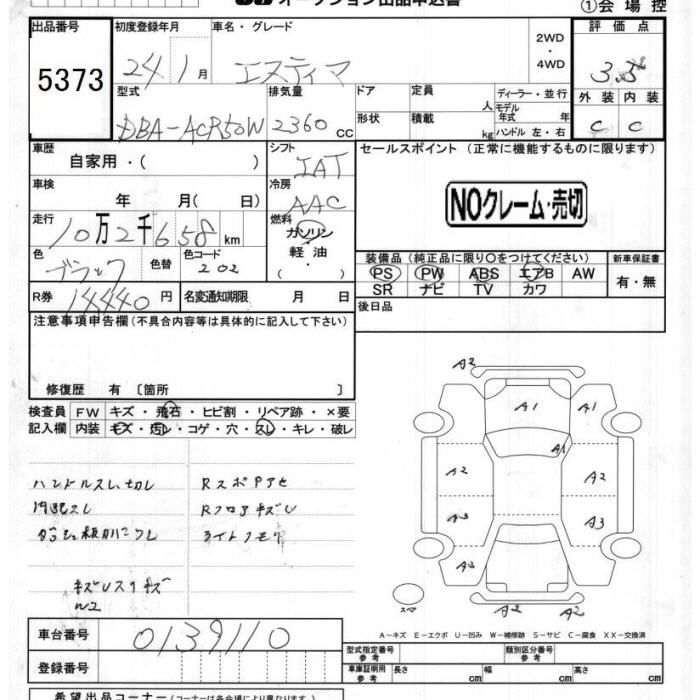 オークション出品申込書
①会場控
出品番号
5373
初度登録年月
24 1 月
車名・グレード
エスティマ
2WD
・
4WD
評価点
3.5
外装 内装
C C
型式
DBA-ACR50W
排気量
2360 CC
ドア
定員
人
形状
積載
kg
ディーラー・並行
モデル年式 年
ハンドル 左・右
車歴
自家用・( )
シフト
IAT
セールスポイント (正常に機能するものに限ります)
NOクレーム・売切
車検
年 月( 日)
冷房
AAC
走行
10万2千658 km
燃料
ガソリン
軽油
( ・ )
色
ブラック
色替
色コード
202
装備品 (純正品に限り○をつけてください)
PS PW ABS エアB AW
SR ナビ TV カワ
新車保証書
有・無
R券
14440円
名変通知期限
月 日
後日品
注意事項申告欄 (不具合内容等は具体的に記入して下さい)
修復歴 有 〔箇所 〕
検査員
記入欄
FW キズ・飛石・ヒビ割・リペア跡・×要
内装 キズ・汚レ・コゲ・穴・スレ・キレ・破レ
ハンドルスレ、切レ
内張スレ
キズ
W2
RスポPアセ
Rフロアキズ
ライトクモリ
A2
A1 A1
A1
A2 A2
A3 A3
A3 A2
スペ
A2 A2
A－キズ E－エクボ U－凹み W－補修跡 S－サビ C－腐食 XX－交換済
車台番号
0139110
登録番号
型式指定番号
参考
類別区分番号
参考
車庫証明用
参考
長さ cm 幅 cm 高さ cm
希望出品コーナー (コーナーは各会場により異なります。)